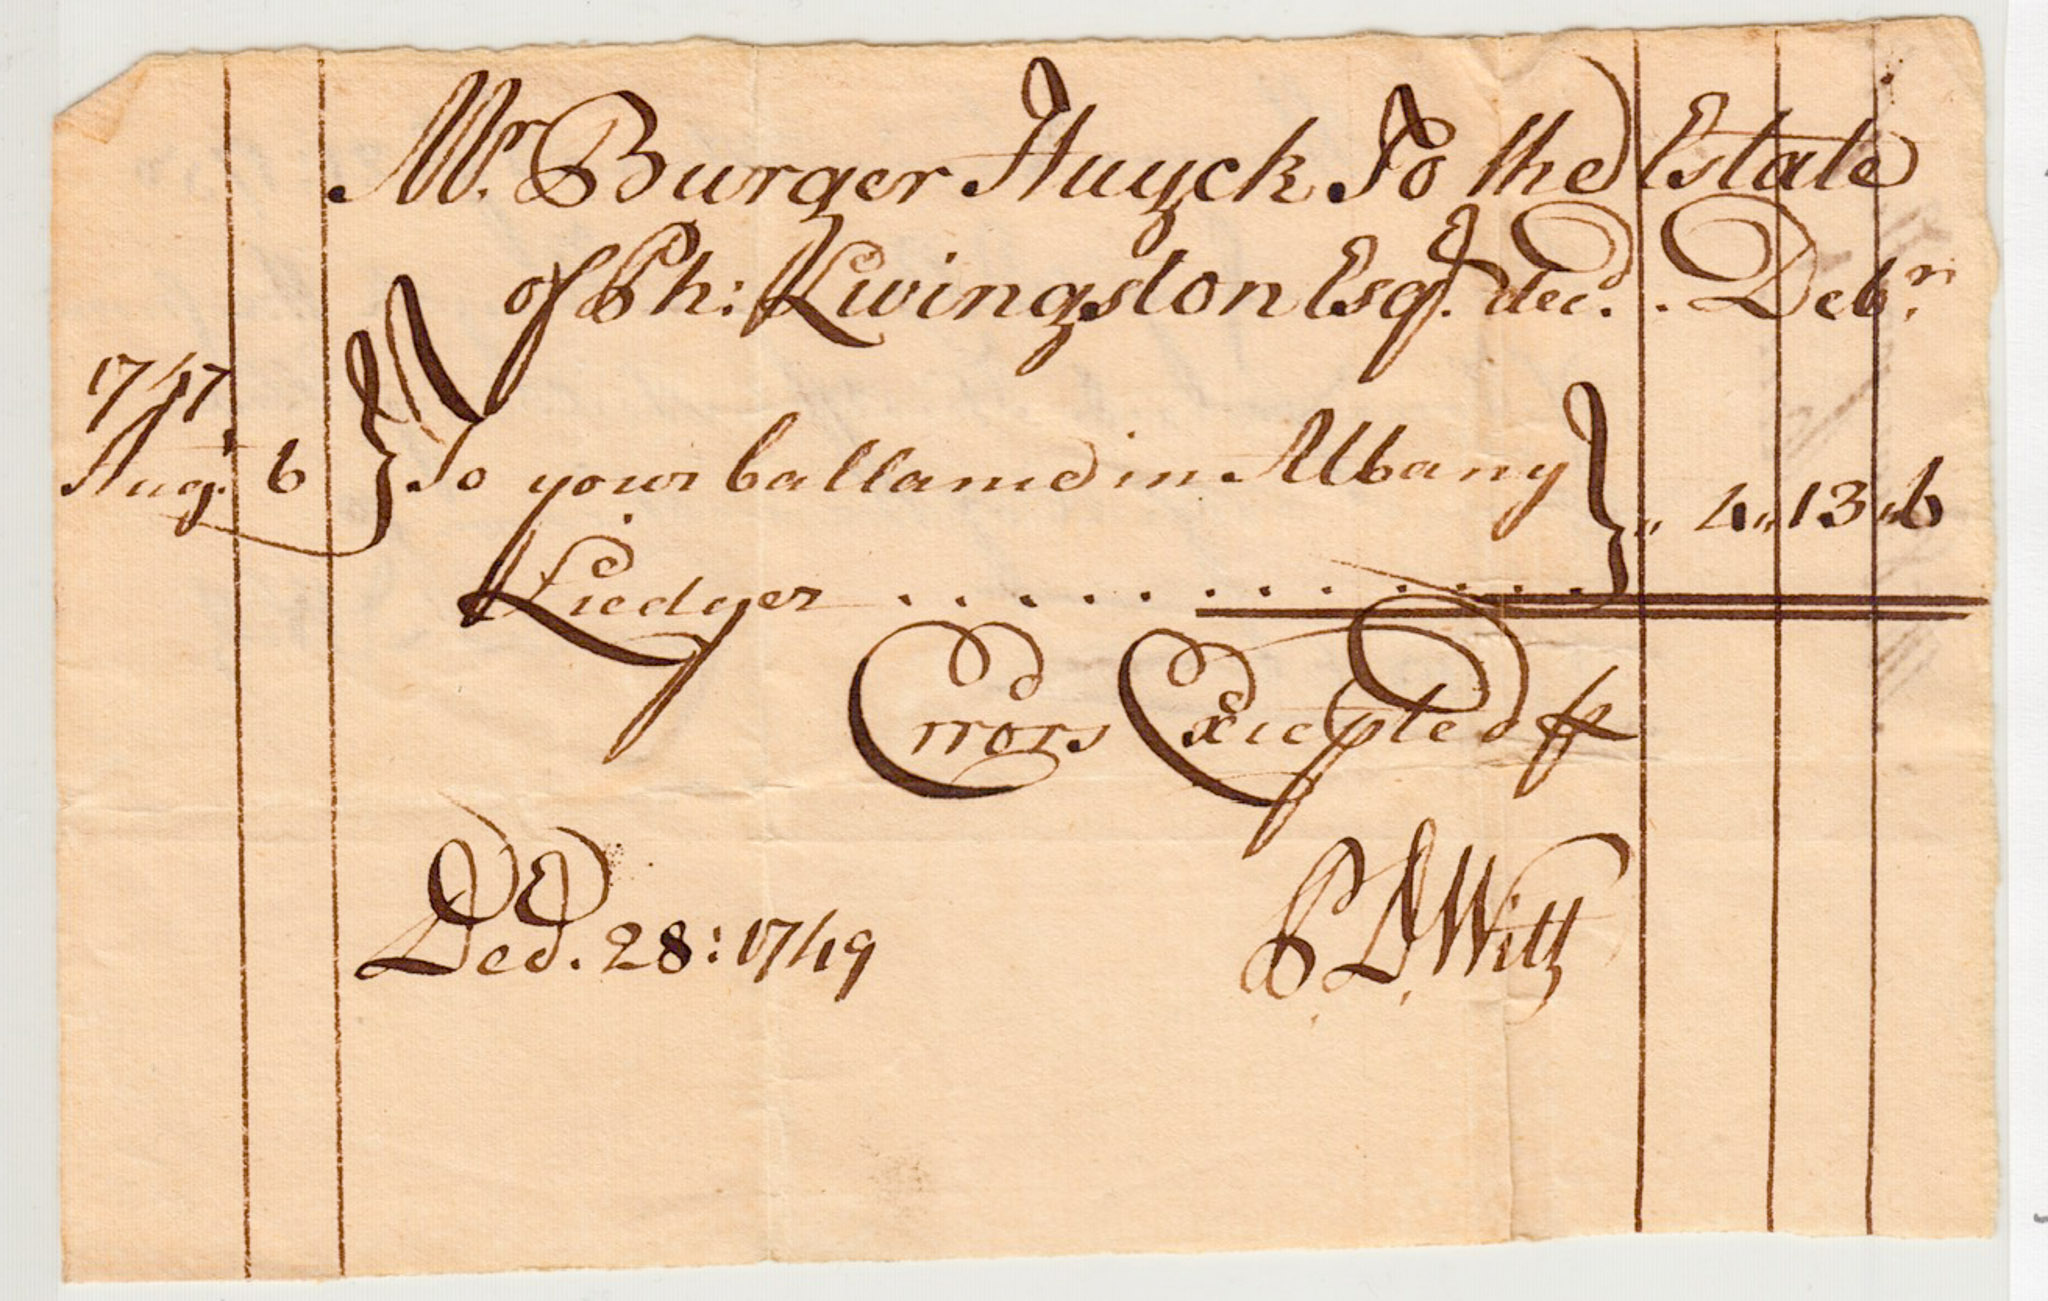 Mr. Burger Huyck To the Estate
of Ph: Livingston Esqr. decd. . Debr.
1747
Augt. 6 } To your ballance in Albany } „ 4 „ 13 „ 6
Liedger . . . . . . . . . . . .
Errors Excepted ⅌
Decd. 28: 1749
P D. Witt